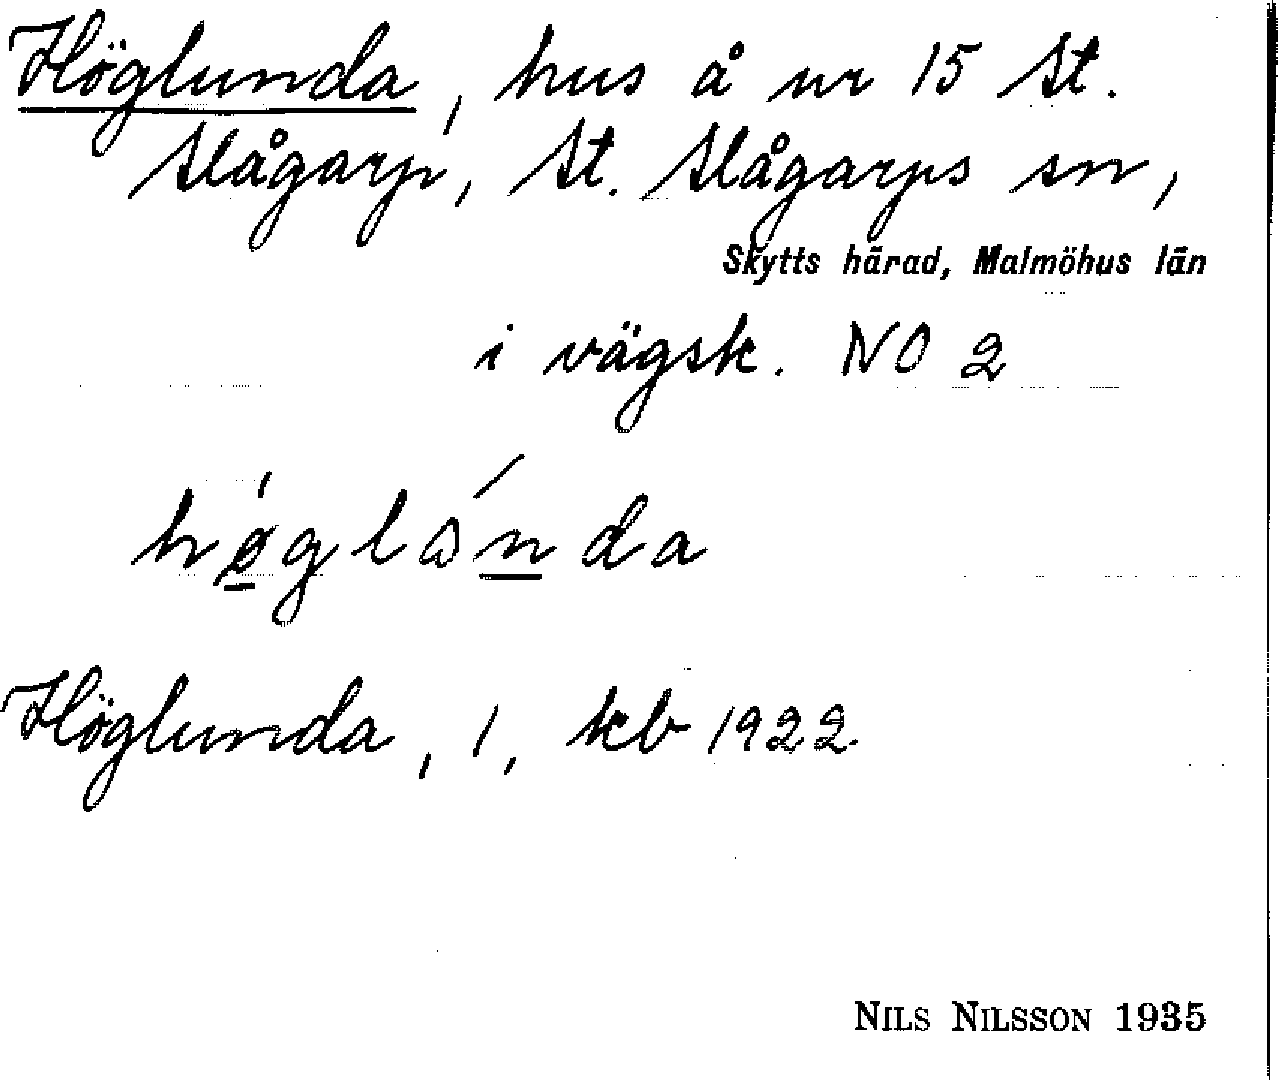 Höglunda, hus å nr 15 St.
Slågarp, St. Slågarps sn,
Skytts härad, Malmöhus län
i vägsk. NO 2
høglɷnda
Höglunda, 1, kb 1922
NILS NILSSON 1935